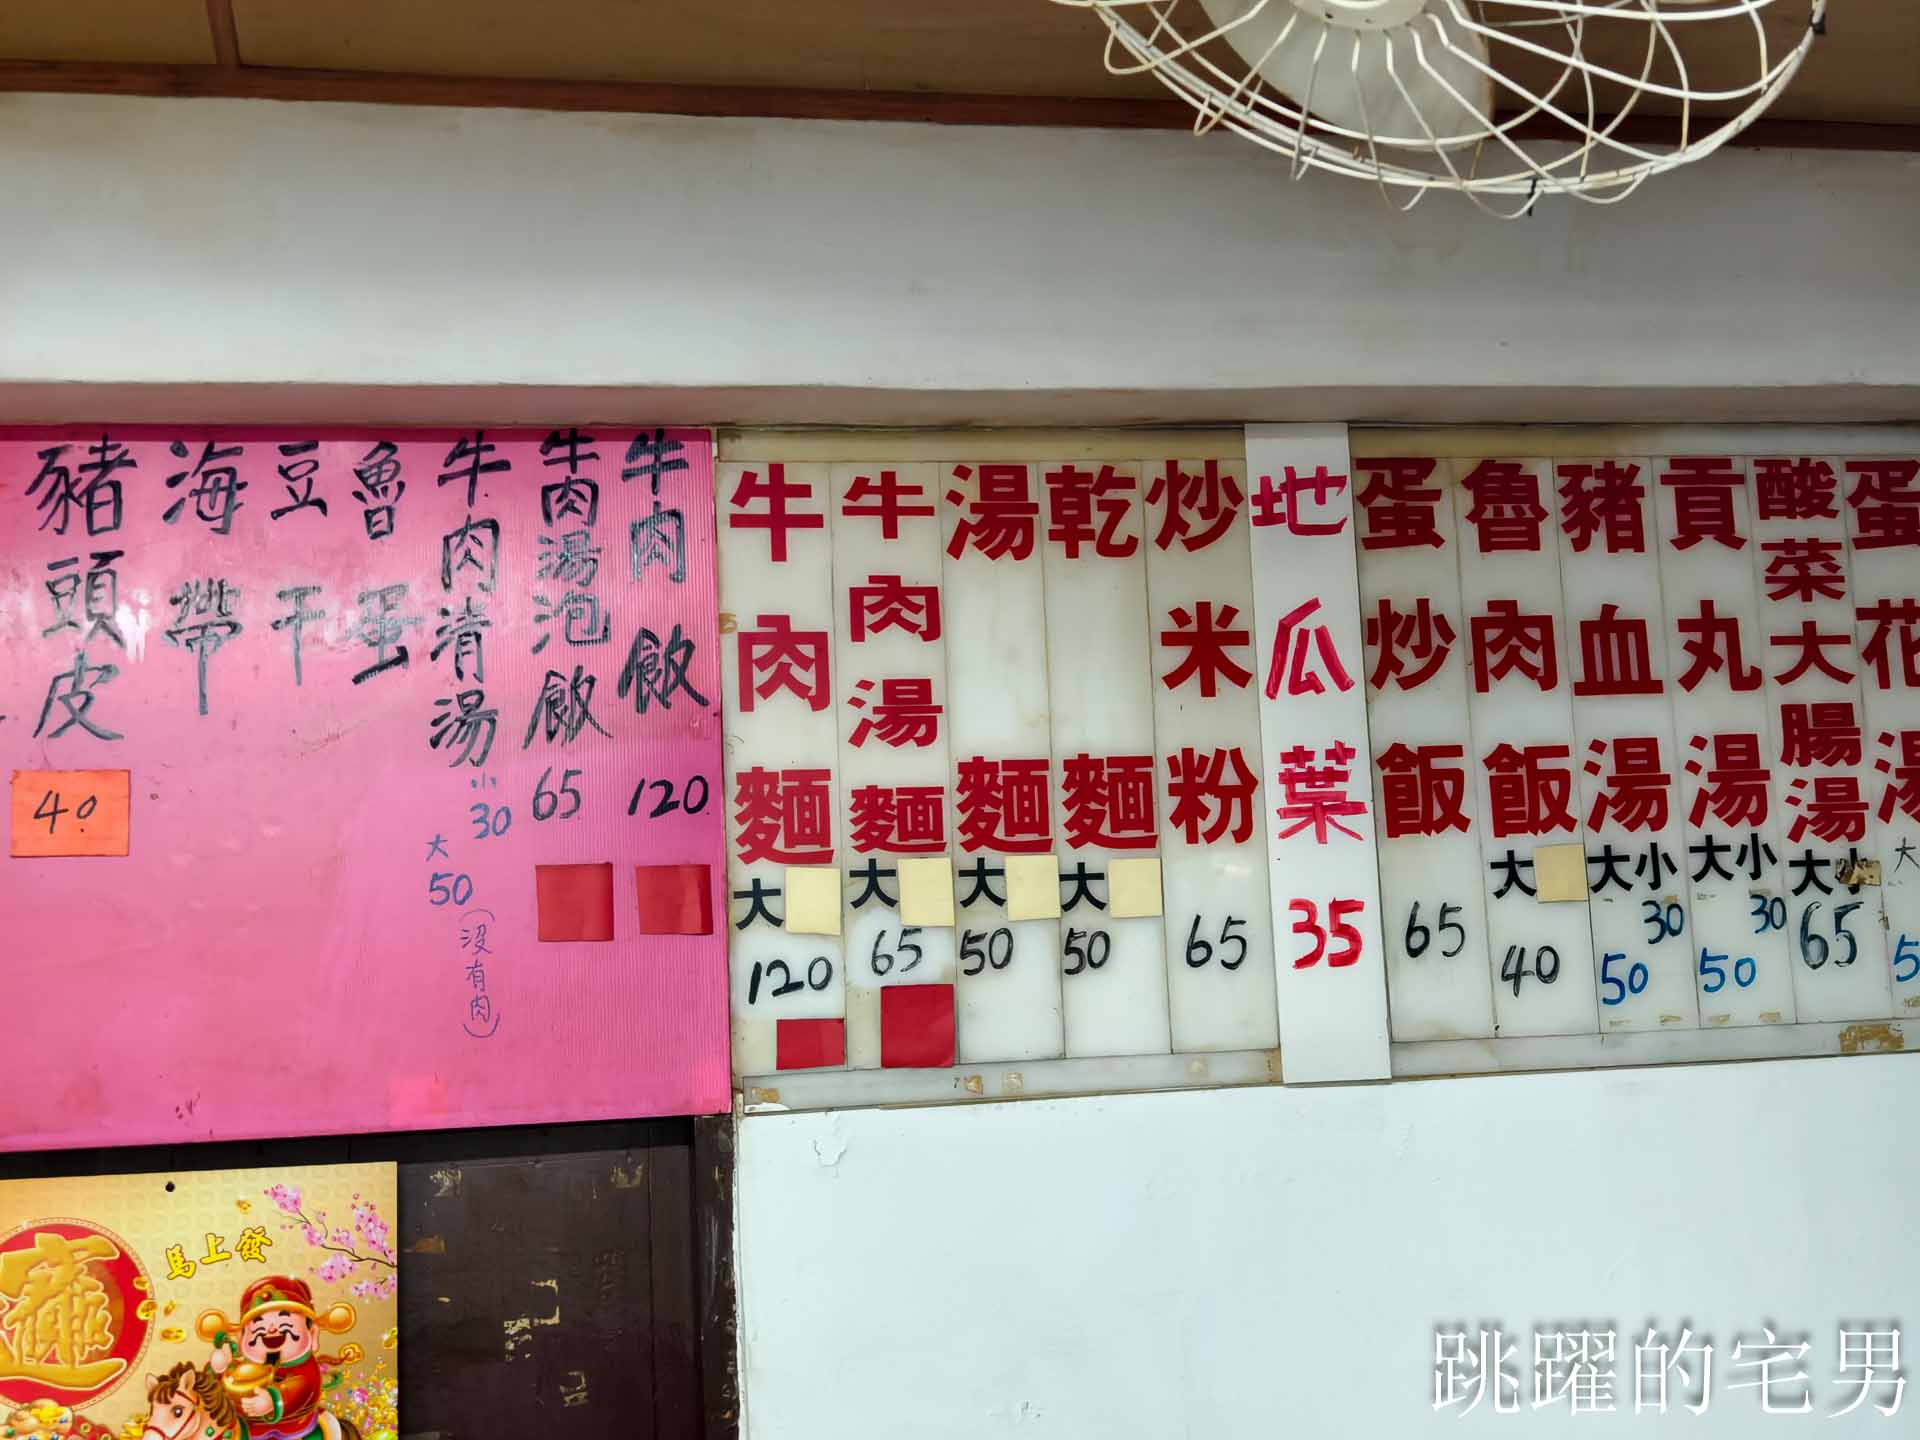 豬頭皮
40
海帶
豆干
魯蛋
牛肉清湯
小
30
大
50
(沒有肉)
牛肉湯泡飯
65
牛肉飯
120
牛肉麵
大
120
牛肉湯麵
大
65
湯麵
大
50
乾麵
大
50
炒米粉
65
地瓜葉
35
蛋炒飯
65
魯肉飯
大
40
豬血湯
大小
30
50
貢丸湯
大小
30
50
酸菜大腸湯
大小
65
蛋花湯
大
5
馬上發
跳躍的宅男